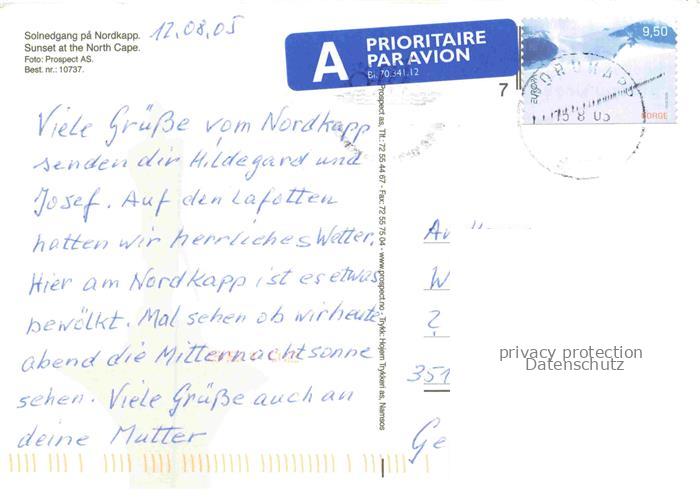 Solnedgang på Nordkapp. 12.08.05
Sunset at the North Cape.
Foto: Prospect AS.
Best. nr.: 10737.
A PRIORITAIRE
PAR AVION
Bl. 70.341.12
9,50
NORGE
7
Viele Grüße vom Nordkapp
senden dir Hildegard und
Josef. Auf den Lafotten
hatten wir herrliches Wetter.
Hier am Nordkapp ist es etwas
bewölkt. Mal sehen ob wir heute
abend die Mitternachtsonne
sehen. Viele Grüße auch an
deine Mutter
Prospect as, Tlf.: 72 55 44 67 - Fax: 72 55 75 04 - www.prospect.no - Trykk: Hojem Trykkeri as, Namsos
An
W
2
351
Ge
privacy protection
Datenschutz